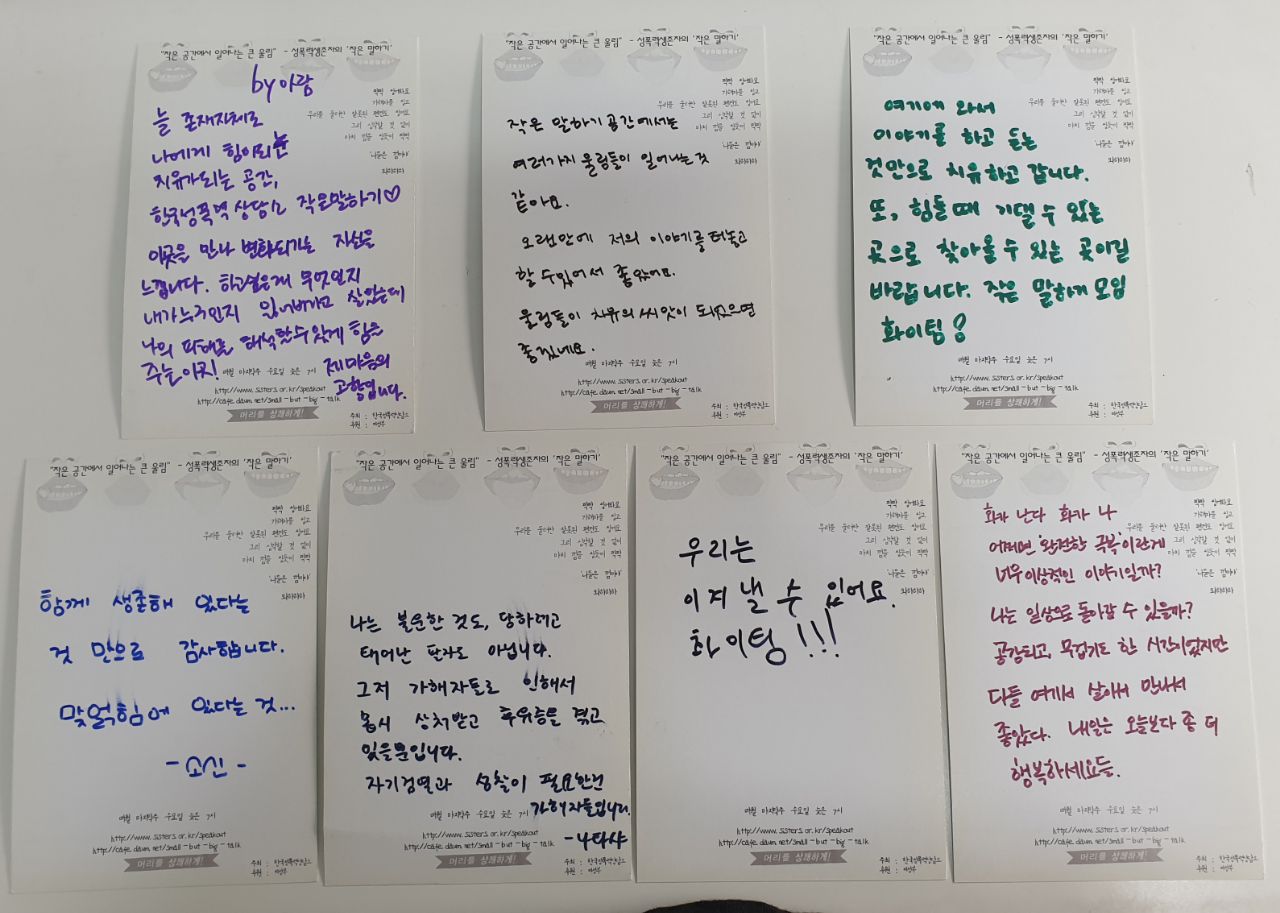 "작은 공간에서 일어나는 큰 울림" - 성폭력생존자의 '작은 말하기'
by 이랑
늘 존재자체로
나에게 힘이되는
치유가되는 공간,
한국성폭력 상담소 작은말하기♡
이곳을 만나 변화되가는 자신을
느낍니다. 하고싶은게 무엇인지
내가누구인지 잃어버리고 살았는데
나의 피해를 해석할수있게 힘을
주는 이곳! 제 마음의
고향입니다.
매월 마지막주 수요일 늦은 7시
http://www.sisters.or.kr/speakout
http://cafe.daum.net/small-but-big-talk
머리를 상쾌하게!
주최 : 한국성폭력상담소
후원 : 여성부
"작은 공간에서 일어나는 큰 울림" - 성폭력생존자의 '작은 말하기'
작은 말하기 공간에서는
여러가지 울림들이 일어나는것
같아요.
오랜만에 저의 이야기를 터놓고
할 수있어서 좋았어요.
울림들이 치유의 씨앗이 되었으면
좋겠네요.
매월 마지막주 수요일 늦은 7시
http://www.sisters.or.kr/speakout
http://cafe.daum.net/small-but-big-talk
머리를 상쾌하게!
주최 : 한국성폭력상담소
후원 : 여성부
"작은 공간에서 일어나는 큰 울림" - 성폭력생존자의 '작은 말하기'
여기에 와서
이야기를 하고 듣는
것만으로 치유하고 갑니다.
또, 힘들때 기댈 수 있는
곳으로 찾아올 수 있는 곳이길
바랍니다. 작은 말하기 모임
화이팅!
매월 마지막주 수요일 늦은 7시
http://www.sisters.or.kr/speakout
http://cafe.daum.net/small-but-big-talk
머리를 상쾌하게!
주최 : 한국성폭력상담소
후원 : 여성부
"작은 공간에서 일어나는 큰 울림" - 성폭력생존자의 '작은 말하기'
함께 생존해 있다는
것 만으로 감사합니다.
맞얽힘에 있다는 것...
- 소신 -
매월 마지막주 수요일 늦은 7시
http://www.sisters.or.kr/speakout
http://cafe.daum.net/small-but-big-talk
머리를 상쾌하게!
주최 : 한국성폭력상담소
후원 : 여성부
"작은 공간에서 일어나는 큰 울림" - 성폭력생존자의 '작은 말하기'
나는 불운한 것도, 당하려고
태어난 팔자도 아닙니다.
그저 가해자들로 인해서
몹시 상처받고 후유증을 겪고
있을뿐입니다.
자기검열과 성찰이 필요한건
가해자들입니다.
- 나타샤
매월 마지막주 수요일 늦은 7시
http://www.sisters.or.kr/speakout
http://cafe.daum.net/small-but-big-talk
머리를 상쾌하게!
주최 : 한국성폭력상담소
후원 : 여성부
"작은 공간에서 일어나는 큰 울림" - 성폭력생존자의 '작은 말하기'
우리는
이겨 낼 수 있어요.
화이팅!!!
매월 마지막주 수요일 늦은 7시
http://www.sisters.or.kr/speakout
http://cafe.daum.net/small-but-big-talk
머리를 상쾌하게!
주최 : 한국성폭력상담소
후원 : 여성부
"작은 공간에서 일어나는 큰 울림" - 성폭력생존자의 '작은 말하기'
화가 난다 화가 나
어쩌면 '완전한 극복'이란게
너무이상적인 이야기일까?
나는 일상으로 돌아갈 수 있을까?
공감되고, 무겁기도 한 시간이었지만
다들 여기서 살아서 만나서
좋았다. 내일은 오늘보다 좀 더
행복하세요들.
매월 마지막주 수요일 늦은 7시
http://www.sisters.or.kr/speakout
http://cafe.daum.net/small-but-big-talk
머리를 상쾌하게!
주최 : 한국성폭력상담소
후원 : 여성부